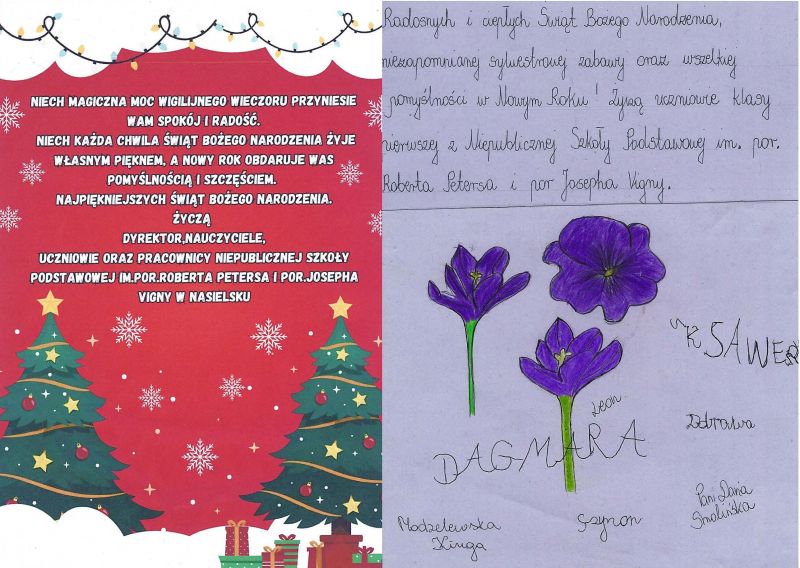 NIECH MAGICZNA MOC WIGILIJNEGO WIECZORU PRZYNIESIE
WAM SPOKÓJ I RADOŚĆ.
NIECH KAŻDA CHWILA ŚWIĄT BOŻEGO NARODZENIA ŻYJE
WŁASNYM PIĘKNEM, A NOWY ROK OBDARUJE WAS
POMYŚLNOŚCIĄ I SZCZĘŚCIEM.
NAJPIĘKNIEJSZYCH ŚWIĄT BOŻEGO NARODZENIA.
ŻYCZĄ
DYREKTOR,NAUCZYCIELE,
UCZNIOWIE ORAZ PRACOWNICY NIEPUBLICZNEJ SZKOŁY
PODSTAWOWEJ IM.POR.ROBERTA PETERSA I POR.JOSEPHA
VIGNY W NASIELSKU
Radosnych i ciepłych Świąt Bożego Narodzenia,
niezapomnianej sylwestrowej zabawy oraz wszelkiej
pomyślności w Nowym Roku! Życzą uczniowie klasy
pierwszej z Niepublicznej Szkoły Podstawowej im. por.
Roberta Petersa i por Josepha Vigny.
KSAWER
Leon
DAGMARA
Modzelewska
Kinga
Szymon
Pani Daria
Smolińska